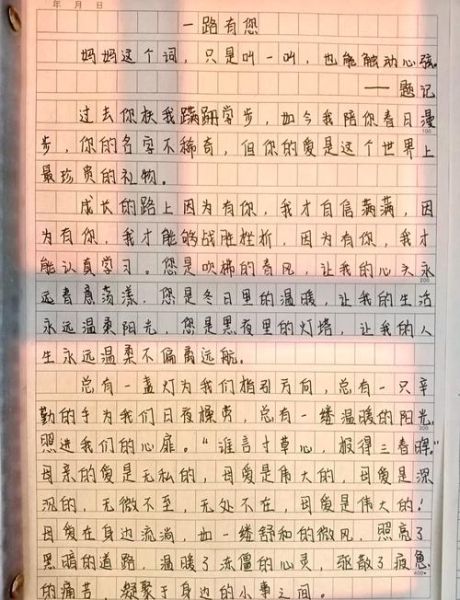 年 月 日
一路有您
妈妈这个词，只是叫一叫，也能触动心弦。
——题记
过去你扶我蹒跚学步，如今我陪你春日漫
步，你的名字不稀奇，但你的爱是这个世界上
最珍贵的礼物。
成长的路上因为有你，我才自信满满，因
为有你，我才能够战胜挫折，因为有你，我才
能认真学习。您是吹拂的春风，让我的心头永
远春意荡漾，您是冬日里的温暖，让我的生活
永远温柔阳光，您是黑夜里的灯塔，让我的人
生永远温柔不偏离远航。
总有一盏灯为我们指引方向，总有一只辛
勤的手为我们日夜操劳，总有一缕温暖的阳光，
照进我们的心扉。“谁言寸草心，报得三春晖。”
母亲的爱是无私的，母爱是伟大的，母爱是深
沉的，无微不至，无处不在，母爱是伟大的！
母爱在身边流淌，如一缕舒和的微风，照亮了
黑暗的道路，温暖了冻僵的心灵，驱散了疲惫
的痛苦，凝聚于身边的小事之间。